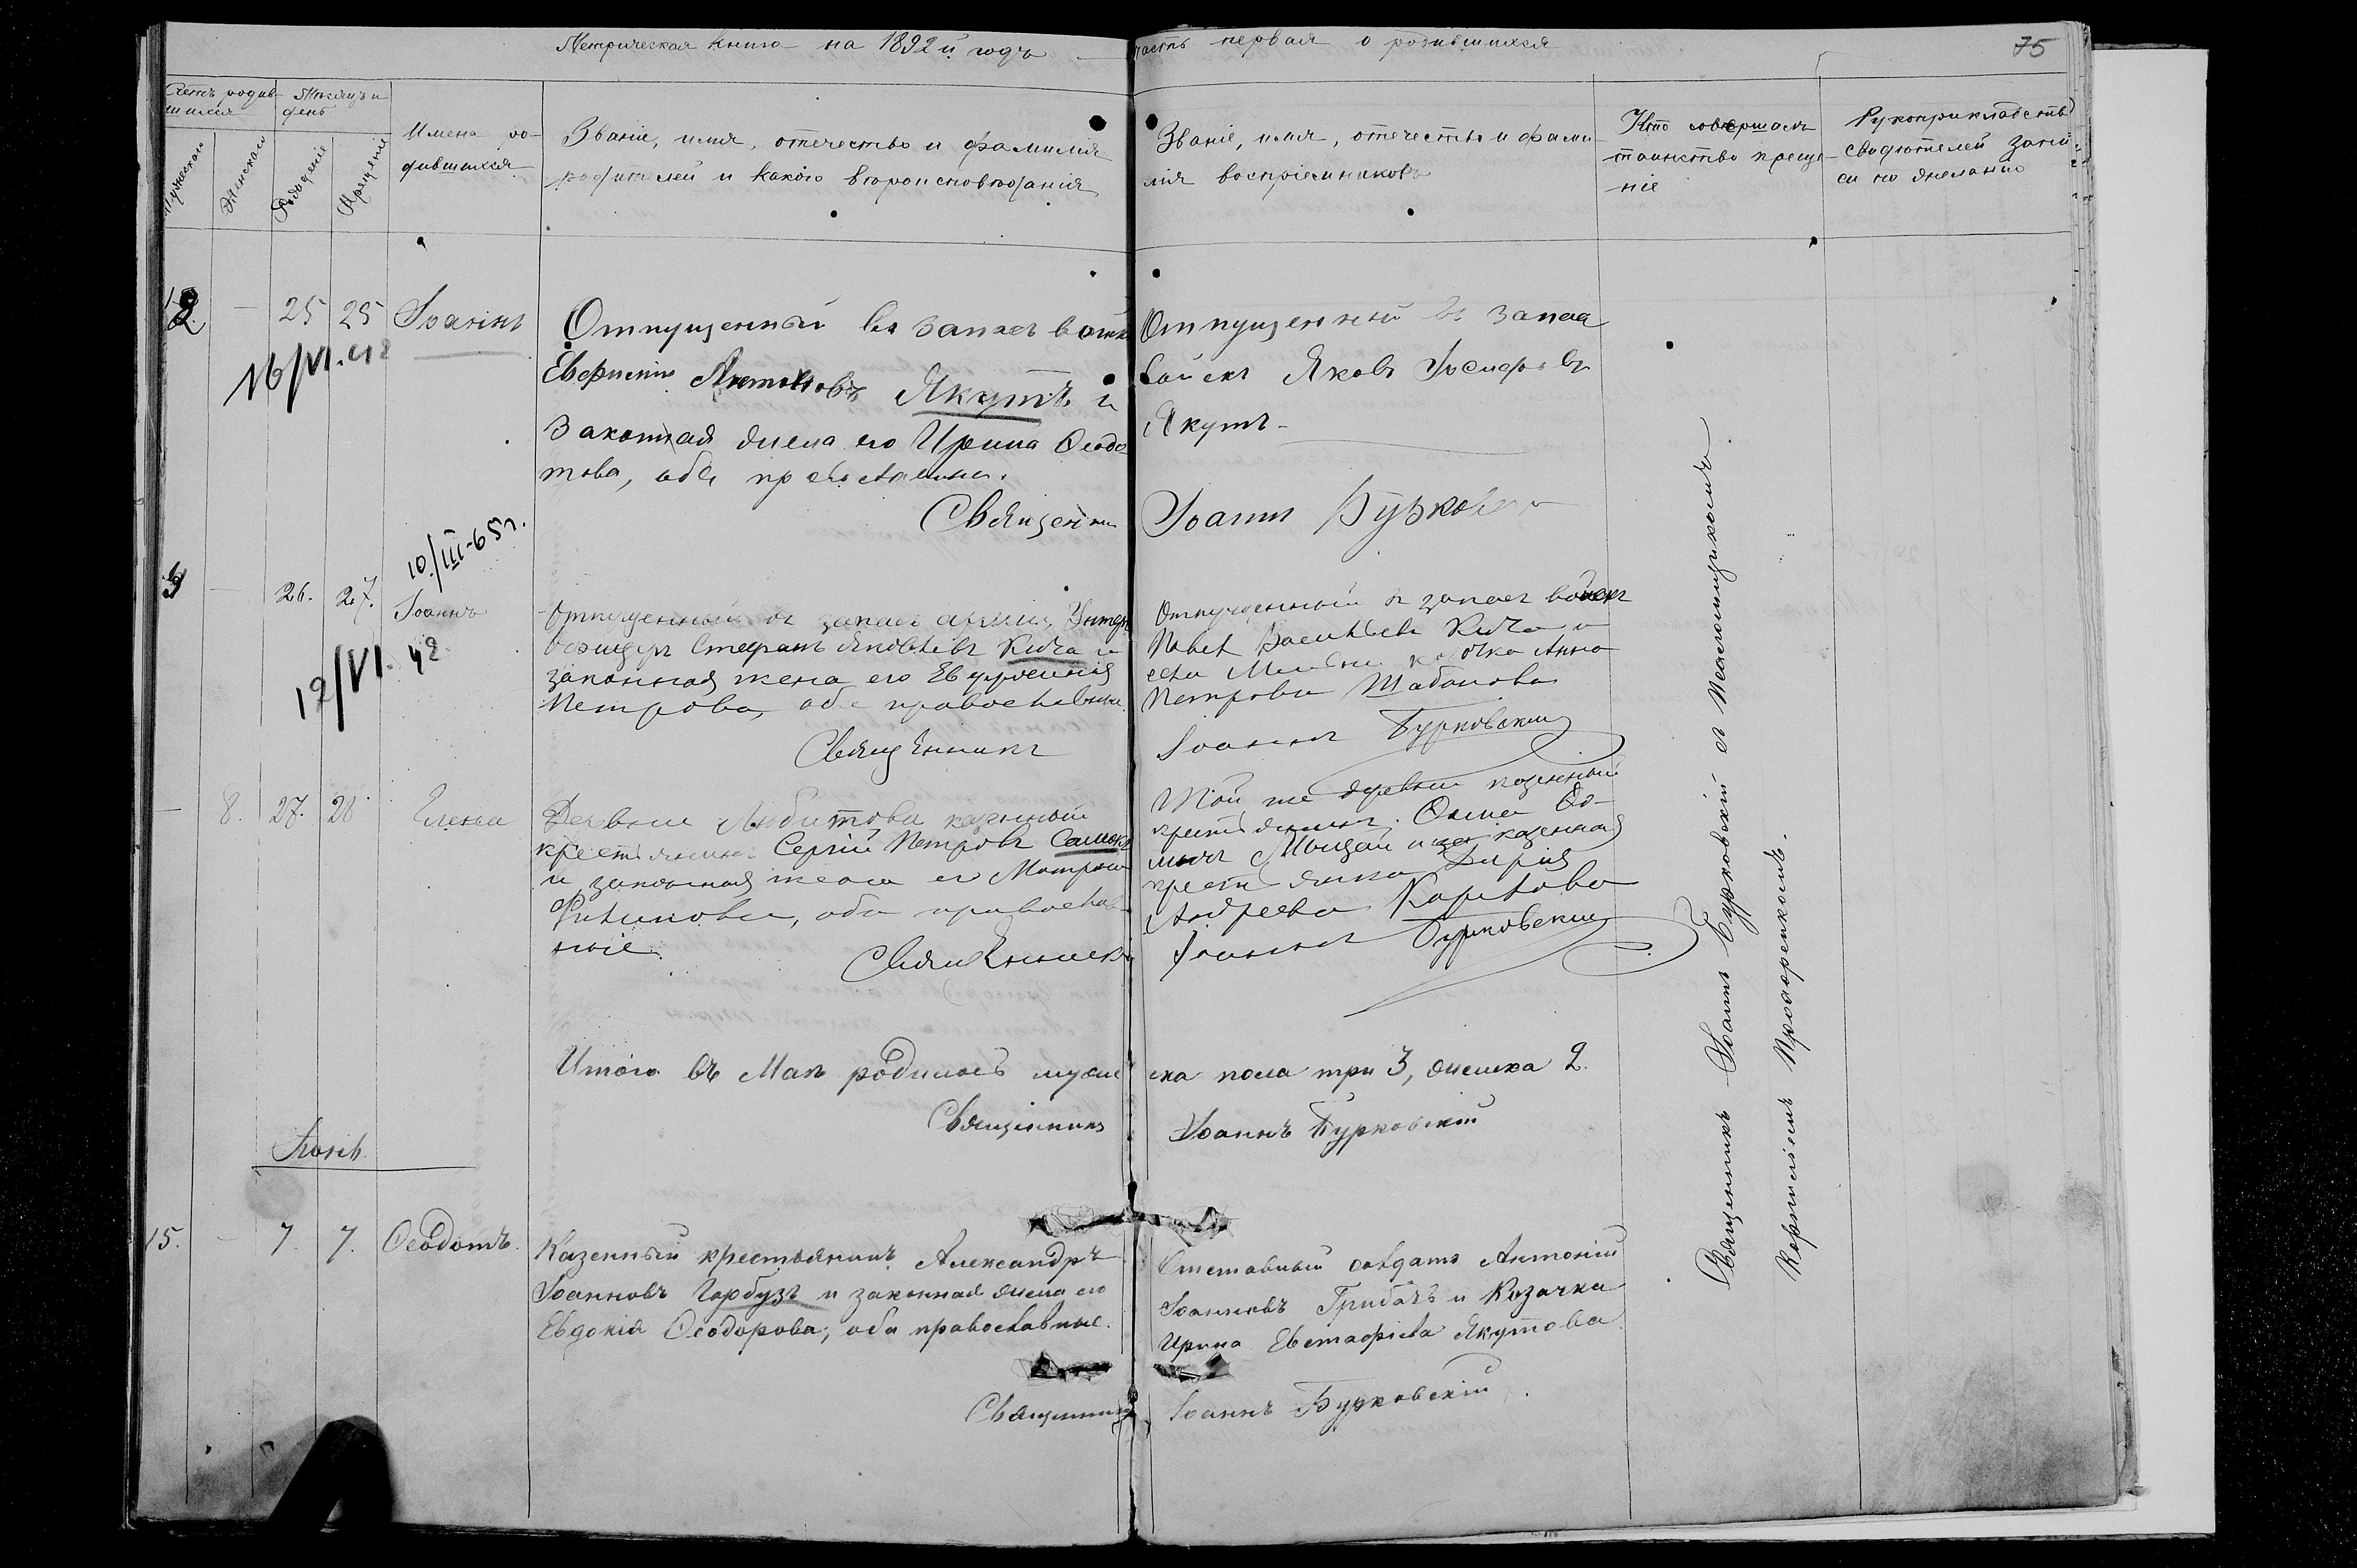 Метрическая книга на 1892й годъ
часть первая о родившихся
75
Счетъ родив-
шихся
Мѣсяцъ и
день
Мужескаго
Женскаго
Рожденіе
Крещеніе
Имена ро-
дившихся
Званіе, имя, отечество и фамилія
родителей и какого вѣроисповѣданія
Званіе, имя, отечество и фами
лія воспріемниковъ
Кто совершалъ
таинство креще-
ніе
Рукоприкладство
свидѣтелей запи
си по желанію
25 25 Іоаннъ
16/VI.42
Отпущенный въ запасъ войскъ
Антоновъ Якутъ и
Законная жена его Ирина Ѳеодо
това, оба православные.
Священникъ
Отпущенный въ запасъ
войскъ Яковъ Іосифовъ
Якутъ
Іоаннъ Бурковскій
10./III-65г.
26. 27. Іоаннъ
12/VI. 42
Отпущенный въ запасъ арміи Унтеръ
офицеръ Стефанъ Яковлевъ Кича и
законная жена его Евфросинія
Петрова, оба православные.
Священникъ
Отпущенный въ запасъ войскъ
Павелъ Васильевъ Кича и
Анна
Петрова Шабанова
Іоаннъ Бурковскій
8. 27. 28 Елена
Деревни Любитова казенный
крестьянинъ Сергій Петровъ
и законная жена его Матрона
Филипова, оба православ
ные.
Священникъ
Той же деревни казенный
крестьянинъ Ѳома Ѳо-
минъ и казенная
крестьянка Дарія
Андреева Карпова
Іоаннъ Бурковскій
Итого въ Маѣ родилось мужс
ска пола три 3, женска 2.
Священникъ
Іоаннъ Бурковскій
Іюнь.
15. - 7. 7. Ѳеодотъ.
Казенный крестьянинъ Александръ
Іоанновъ Гарбузъ и законная жена его
Евдокія Ѳеодорова, оба православные.
Священникъ
Отставный солдатъ Антоній
Іоанновъ Грибачъ и Козачка
Ирина Евстафіева Якутова
Іоаннъ Бурковскій
Священникъ Іоаннъ Бурковскій съ Псаломщикомъ
Корниліемъ Прохоренкомъ.